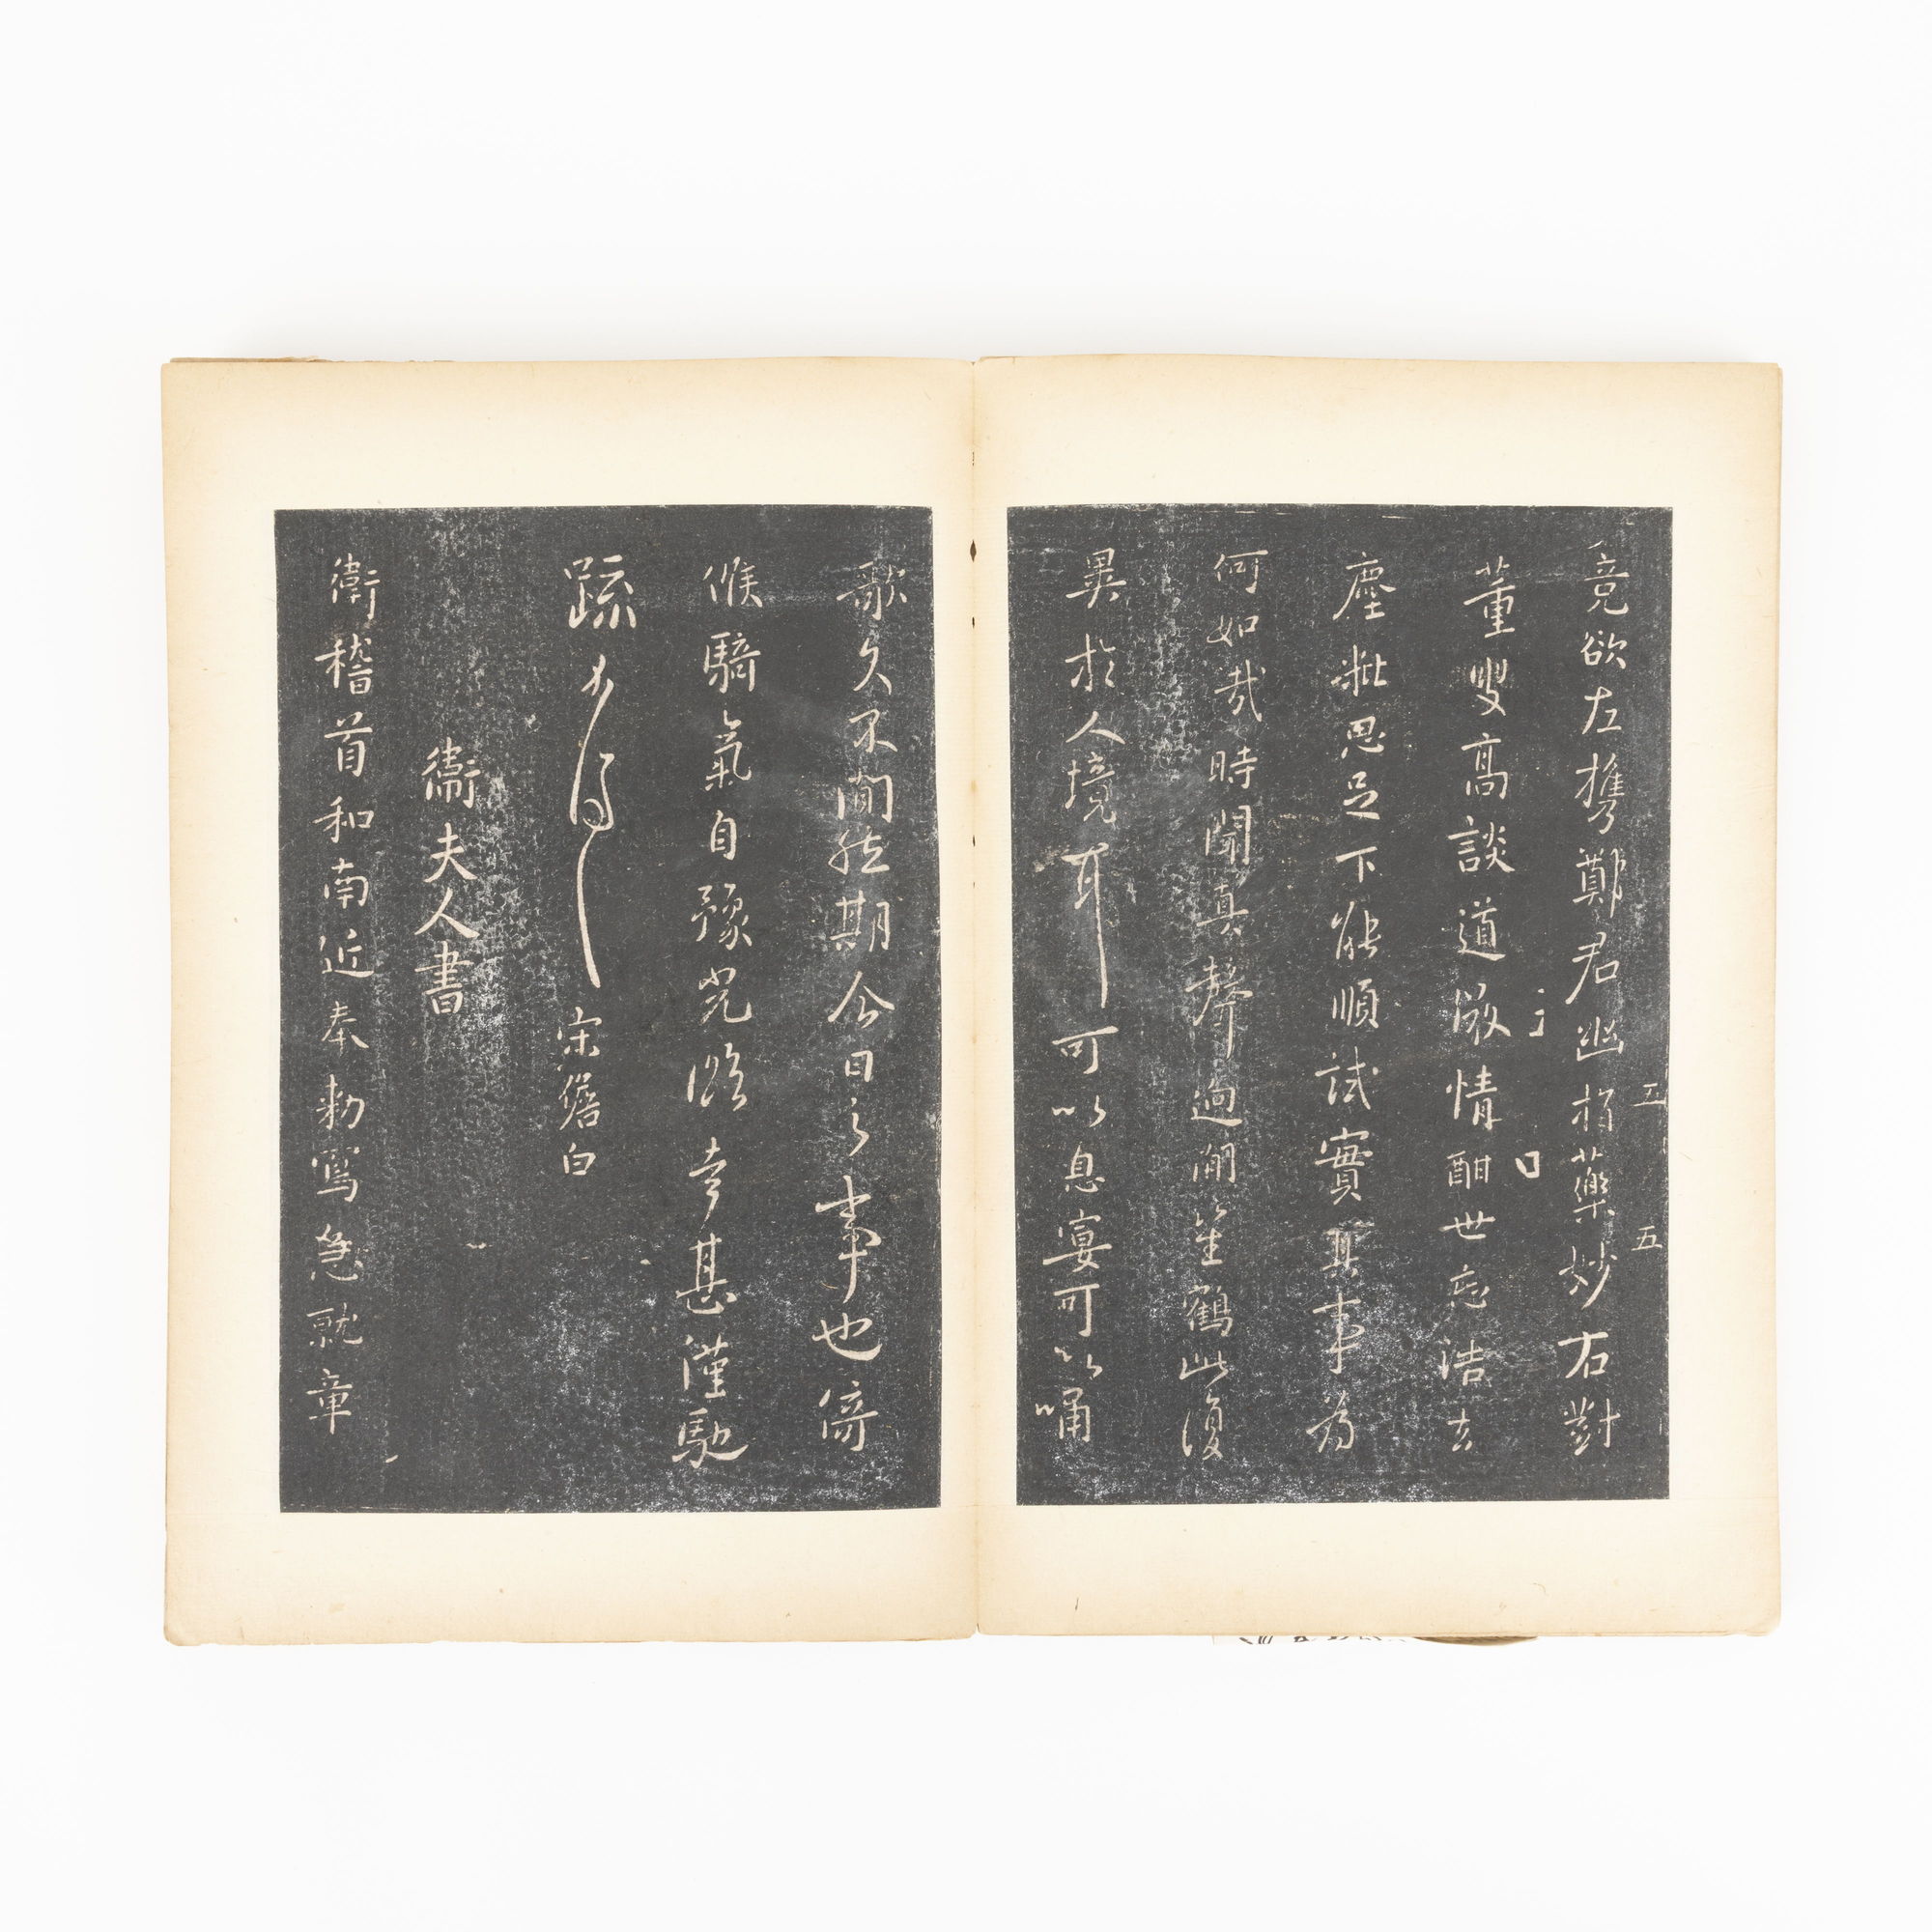 五 五
竟欲左攜鄭君幽指藥妙右對
董叟高談道微情酣世忘浩去
塵粃思足下能順試實其事為
何如哉時聞真聲迥闢笙鶴此復
異於人境耳可以息宴可以嘯
歌久不聞茲期今日之事也倚
候騎氣自豫光臨幸甚謹馳
疏 宋儋白
衛夫人書
衛稽首和南近奉勅寫急就章